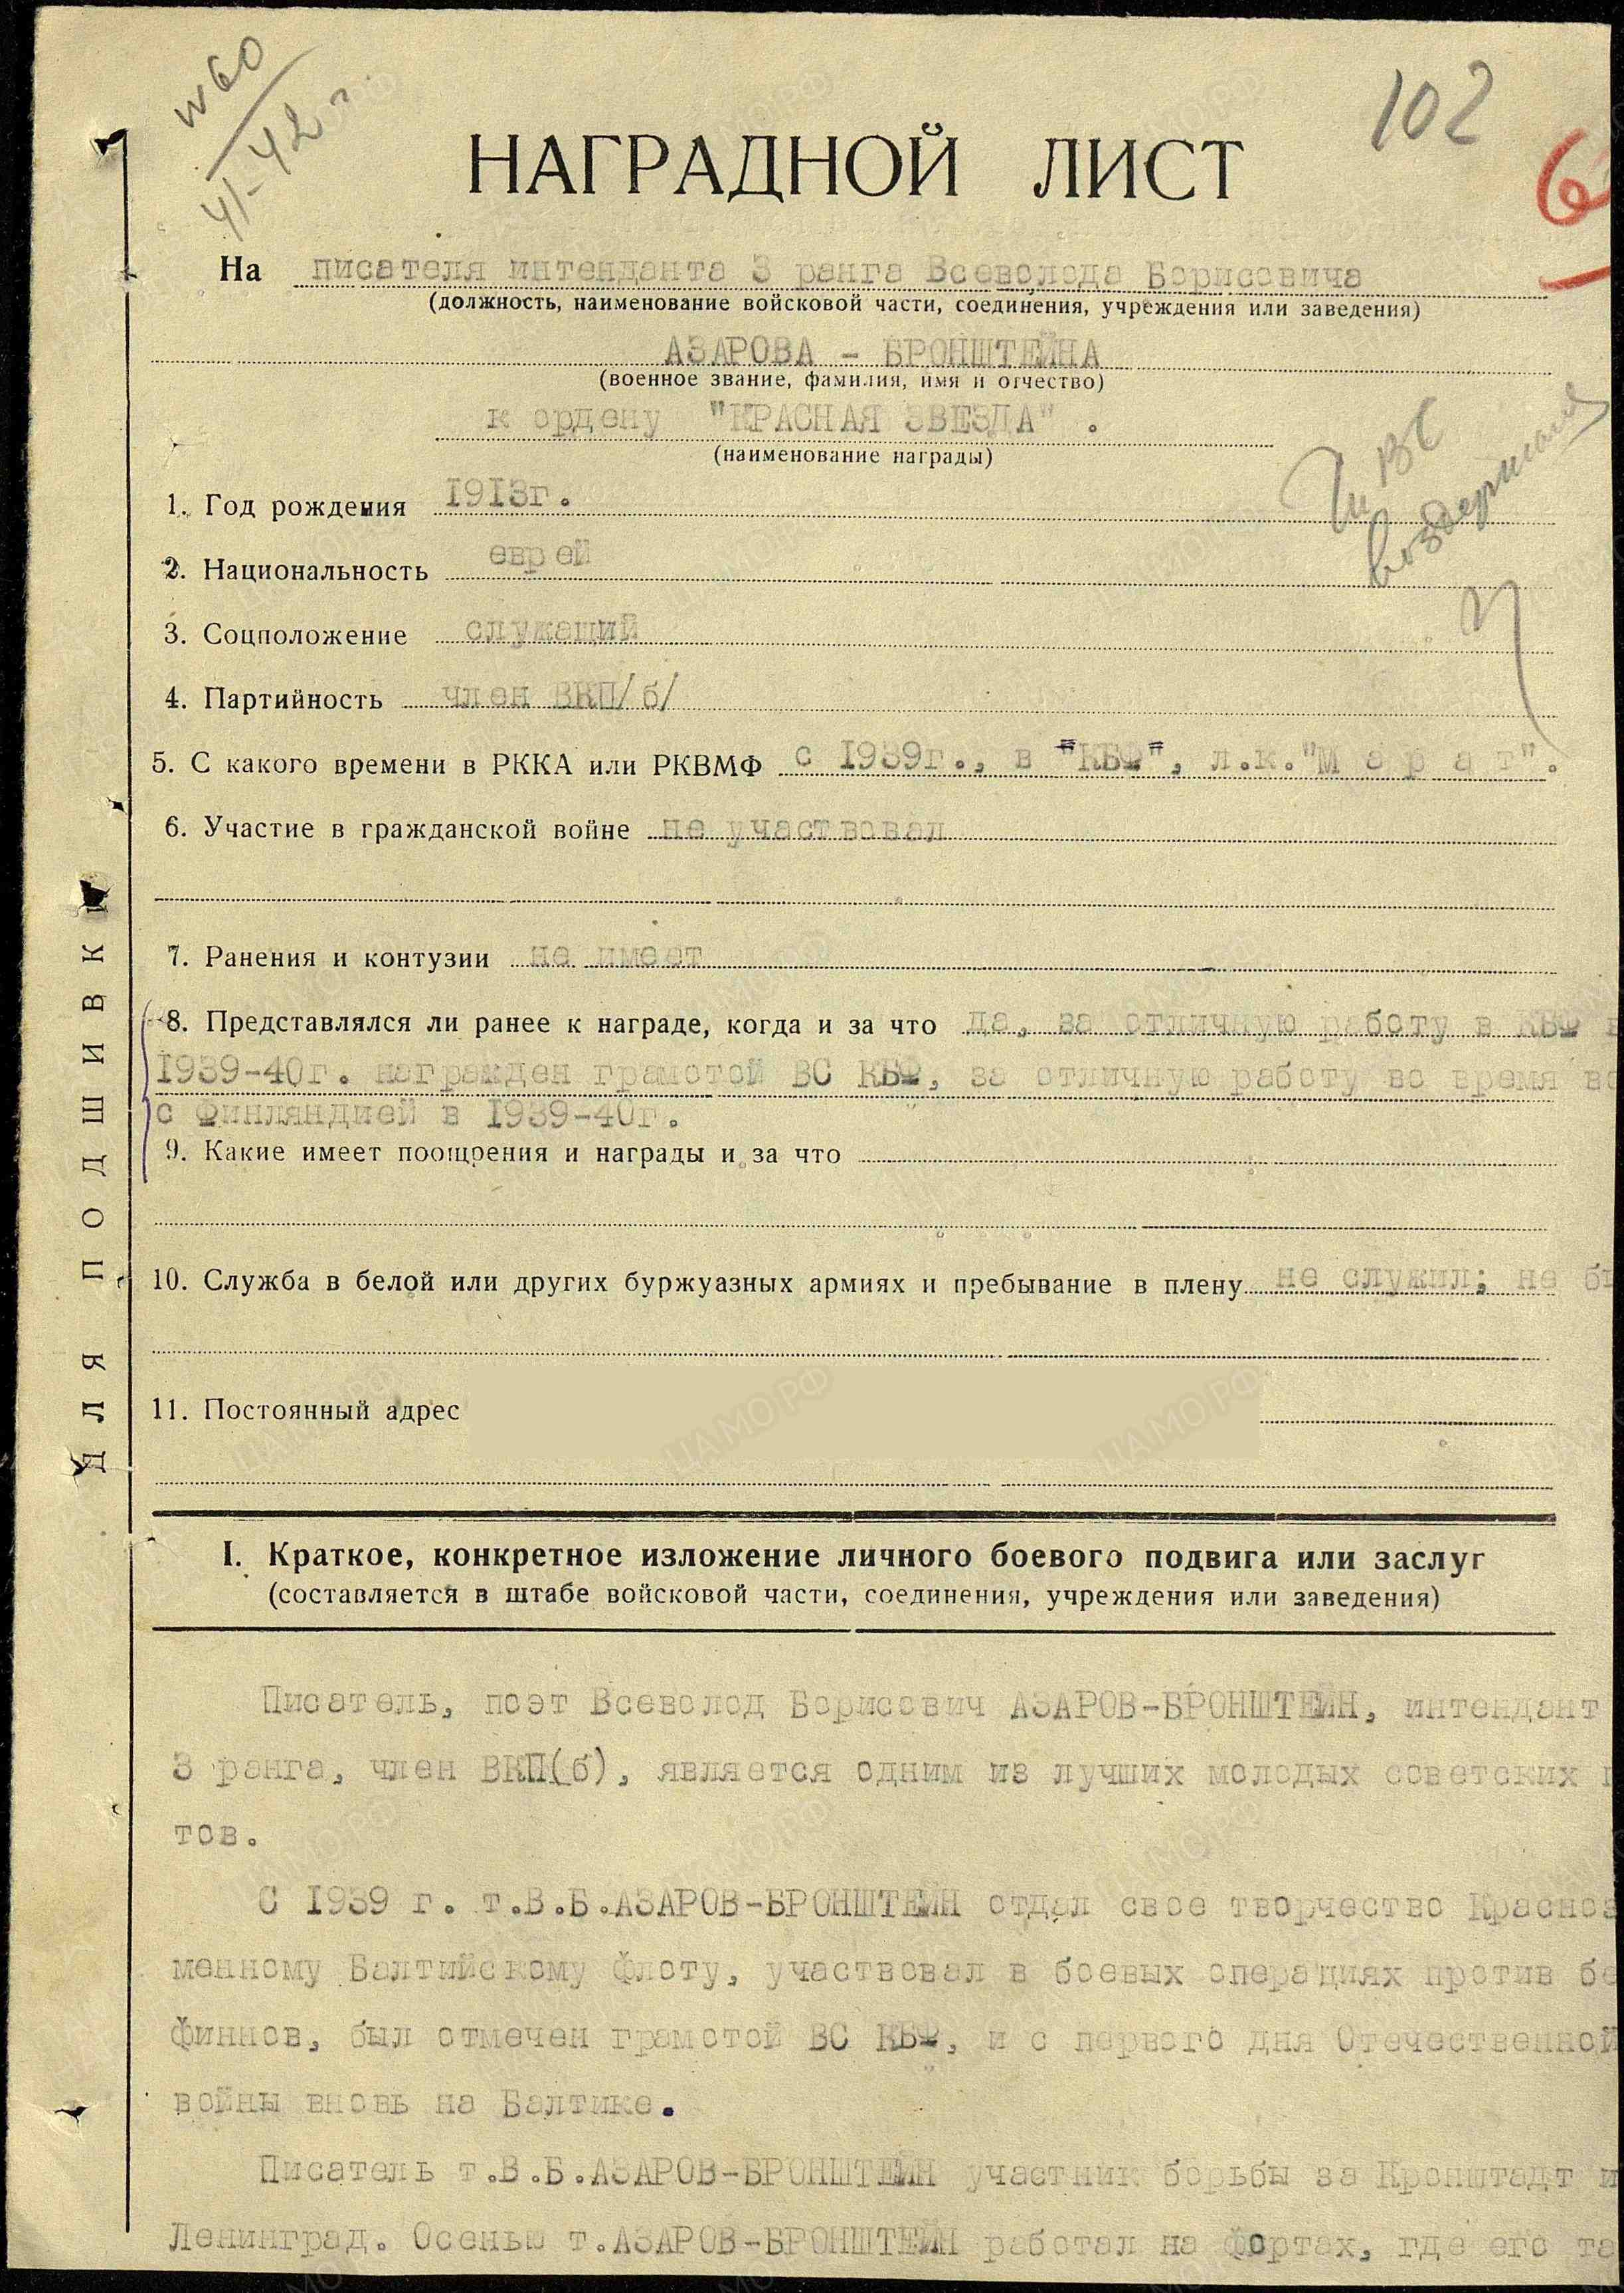 №60
41-42 г
102
6
НАГРАДНОЙ ЛИСТ
На писателя интенданта 3 ранга Всеволода Борисовича
(должность, наименование войсковой части, соединения, учреждения или заведения)
АЗАРОВА - БРОНШТЕЙНА
(военное звание, фамилия, имя и отчество)
к ордену "КРАСНАЯ ЗВЕЗДА" .
(наименование награды)
воздержался
1. Год рождения 1913г.
2. Национальность еврей
3. Соцположение служащий
4. Партийность член ВКП/б/
5. С какого времени в РККА или РКВМФ с 1939г., в "КБФ", л.к."М а р а т".
6. Участие в гражданской войне не участвовал
7. Ранения и контузии не имеет
8. Представлялся ли ранее к награде, когда и за что да, за отличную работу в КБФ в
1939-40г. награжден грамотой ВС КБФ, за отличную работу во время во
с Финляндией в 1939-40г.
9. Какие имеет поощрения и награды и за что
10. Служба в белой или других буржуазных армиях и пребывание в плену не служил; не бы
11. Постоянный адрес
ДЛЯ ПОДШИВКИ
I. Краткое, конкретное изложение личного боевого подвига или заслуг
(составляется в штабе войсковой части, соединения, учреждения или заведения)
Писатель, поэт Всеволод Борисович АЗАРОВ-БРОНШТЕЙН, интендант
3 ранга, член ВКП(б), является одним из лучших молодых советских п
тов.
С 1939 г. т.В.Б.АЗАРОВ-БРОНШТЕЙН отдал свое творчество Красноз
менному Балтийскому Флоту, участвовал в боевых операциях против бе
финнов, был отмечен грамотой ВС КБФ, и с первого дня Отечественной
войны вновь на Балтике.
Писатель т.В.Б.АЗАРОВ-БРОНШТЕЙН участник борьбы за Кронштадт и
Ленинград. Осенью т.АЗАРОВ-БРОНШТЕЙН работал на фортах, где его та